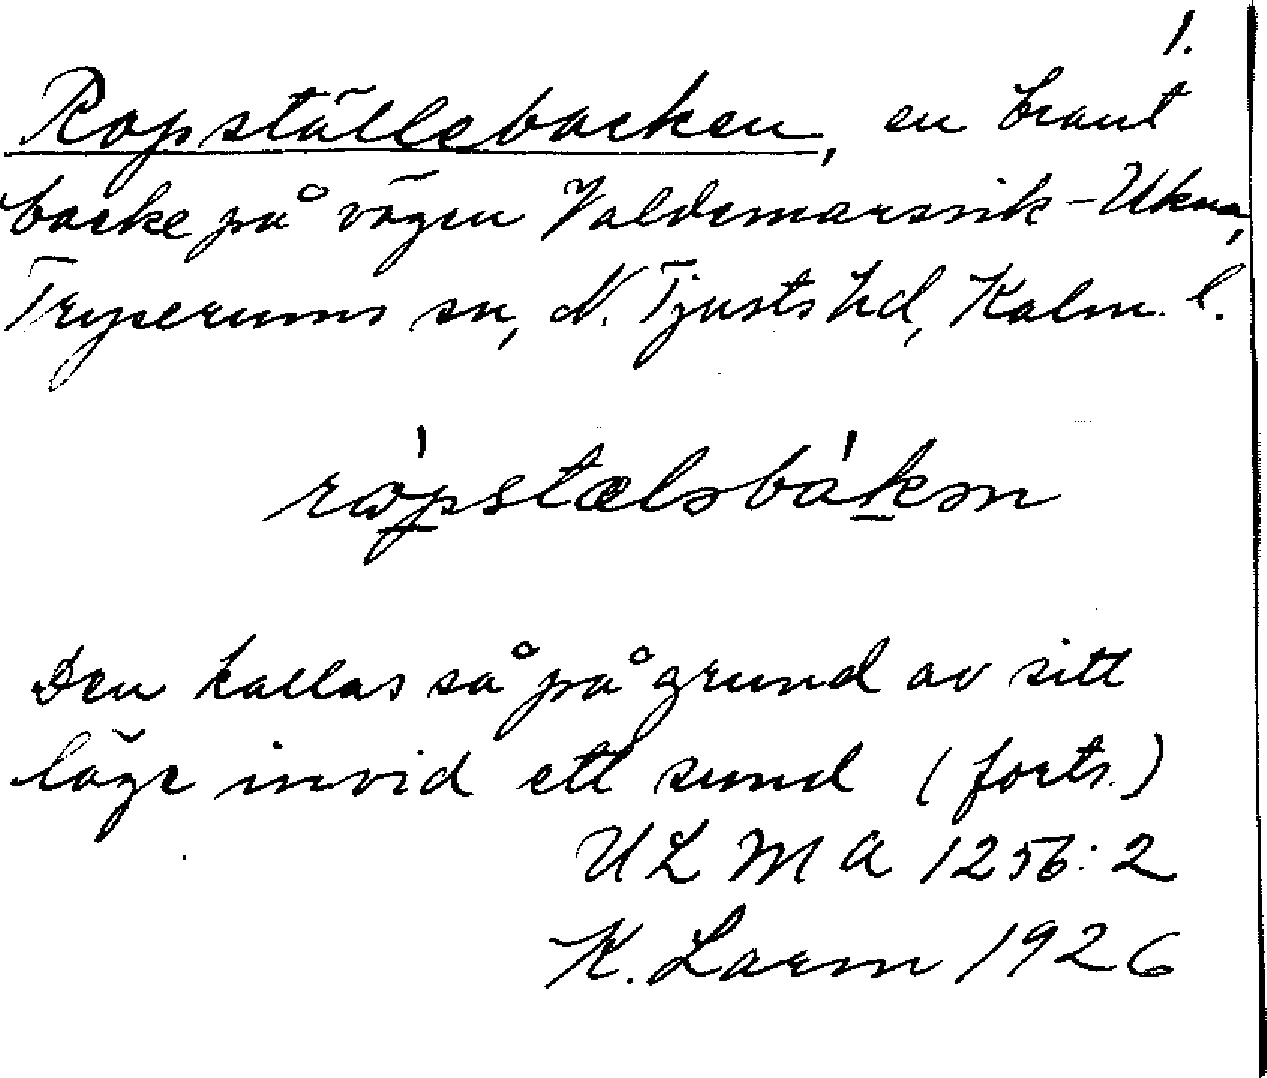 1.
Ropställebacken, en brant
backe på vägen Valdemarsvik-Ukna,
Tryserums sn, N. Tjusts hd, Kalm. l.
ròpstæləbákən
Den kallas så på grund av sitt
läge invid ett sund (forts.)
ULMA 1256:2
K. Larm 1926